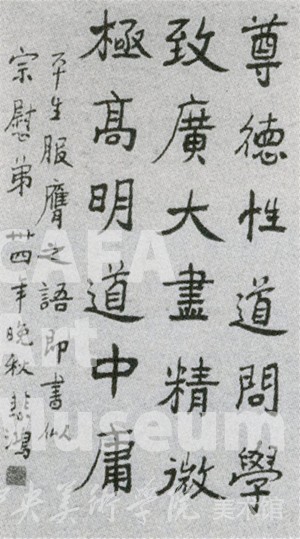 尊德性道問學
致廣大盡精微
極高明道中庸
平生服膺之語即書似
宗慰弟 廿四年晚秋 悲鴻
CAFA
Art
Museum
中央美術學院 美术馆